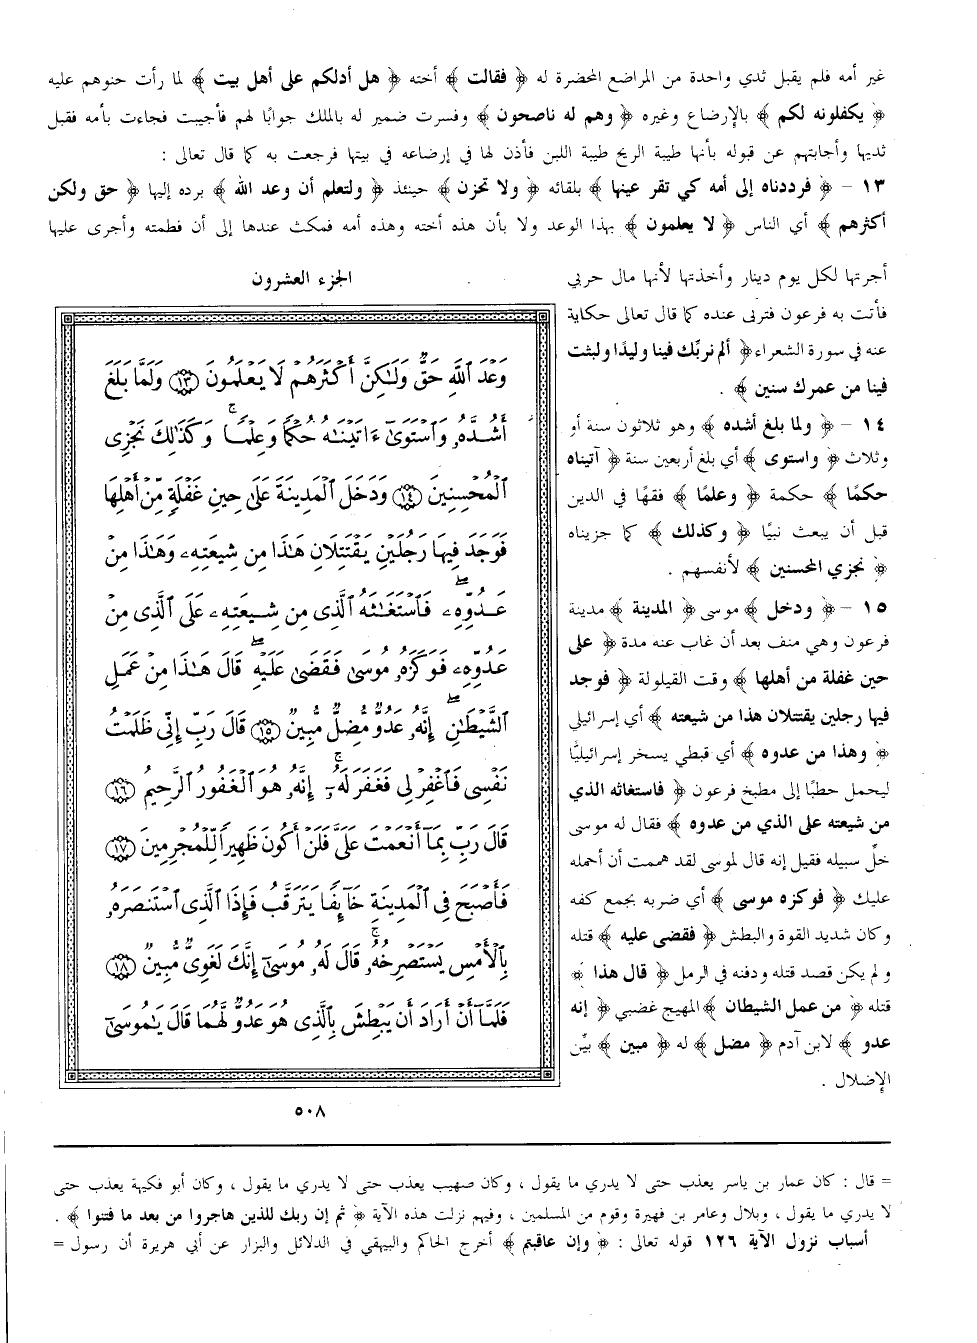 غير أمه فلم يقبل ثدي واحدة من المراضع المحضرة له ﴿ فقالت ﴾ أخته ﴿ هل أدلكم على أهل بيت ﴾ لما رأت حنوهم عليه
﴿ يكفلونه لكم ﴾ بالإرضاع وغيره ﴿ وهم له ناصحون ﴾ وفسرت ضمير له بالملك جوابًا لهم فأجيبت فجاءت بأمه فقبل
ثديها وأجابتهم عن قبوله بأنها طيبة الريح طيبة اللبن فأذن لها في إرضاعه في بيتها فرجعت به كما قال تعالى :
١٣ – ﴿ فرددناه إلى أمه كي تقر عينها ﴾ بلقائه ﴿ ولا تحزن ﴾ حينئذ ﴿ ولتعلم أن وعد الله ﴾ برده إليها ﴿ حق ولكن
أكثرهم ﴾ أي الناس ﴿ لا يعلمون ﴾ بهذا الوعد ولا بأن هذه أخته وهذه أمه فمكث عندها إلى أن فطمته وأجرى عليها
أجرتها لكل يوم دينار وأخذتها لأنها مال حربي
فأتت به فرعون فتربى عنده كما قال تعالى حكاية
عنه في سورة الشعراء ﴿ ألم نربّك فينا وليدًا ولبثت
فينا من عمرك سنين ﴾ .
١٤ – ﴿ ولما بلغ أشده ﴾ وهو ثلاثون سنة أو
وثلاث ﴿ واستوى ﴾ أي بلغ أربعين سنة ﴿ آتيناه
حكمًا ﴾ حكمة ﴿ وعلمًا ﴾ فقهًا في الدين
قبل أن يبعث نبيًا ﴿ وكذلك ﴾ كما جزيناه
﴿ نجزي المحسنين ﴾ لأنفسهم .
١٥ – ﴿ ودخل ﴾ موسى ﴿ المدينة ﴾ مدينة
فرعون وهي منف بعد أن غاب عنه مدة ﴿ على
حين غفلة من أهلها ﴾ وقت القيلولة ﴿ فوجد
فيها رجلين يقتتلان هذا من شيعته ﴾ أي إسرائيلي
﴿ وهذا من عدوه ﴾ أي قبطي يسخر إسرائيليًّا
ليحمل حطبًا إلى مطبخ فرعون ﴿ فاستغاثه الذي
من شيعته على الذي من عدوه ﴾ فقال له موسى
خلّ سبيله فقيل إنه قال لموسى لقد هممت أن أحمله
عليك ﴿ فوكزه موسى ﴾ أي ضربه بجمع كفه
وكان شديد القوة والبطش ﴿ فقضى عليه ﴾ قتله
ولم يكن قصد قتله ودفنه في الرمل ﴿ قال هذا ﴾
قتله ﴿ من عمل الشيطان ﴾ المهيج غضبي ﴿ إنه
عدو ﴾ لابن آدم ﴿ مضل ﴾ له ﴿ مبين ﴾ بيِّن
الإضلال .
الجزء العشرون
وَعْدَ ٱللَّهِ حَقٌّ وَلَٰكِنَّ أَكْثَرَهُمْ لَا يَعْلَمُونَ ﴿١٣﴾ وَلَمَّا بَلَغَ
أَشُدَّهُۥ وَٱسْتَوَىٰٓ ءَاتَيْنَٰهُ حُكْمًا وَعِلْمًا ۚ وَكَذَٰلِكَ نَجْزِى
ٱلْمُحْسِنِينَ ﴿١٤﴾ وَدَخَلَ ٱلْمَدِينَةَ عَلَىٰ حِينِ غَفْلَةٍ مِّنْ أَهْلِهَا
فَوَجَدَ فِيهَا رَجُلَيْنِ يَقْتَتِلَانِ هَٰذَا مِن شِيعَتِهِۦ وَهَٰذَا مِنْ
عَدُوِّهِۦ ۖ فَٱسْتَغَٰثَهُ ٱلَّذِى مِن شِيعَتِهِۦ عَلَى ٱلَّذِى مِنْ
عَدُوِّهِۦ فَوَكَزَهُۥ مُوسَىٰ فَقَضَىٰ عَلَيْهِ ۖ قَالَ هَٰذَا مِنْ عَمَلِ
ٱلشَّيْطَٰنِ ۖ إِنَّهُۥ عَدُوٌّ مُّضِلٌّ مُّبِينٌ ﴿١٥﴾ قَالَ رَبِّ إِنِّى ظَلَمْتُ
نَفْسِى فَٱغْفِرْ لِى فَغَفَرَ لَهُۥٓ ۚ إِنَّهُۥ هُوَ ٱلْغَفُورُ ٱلرَّحِيمُ ﴿١٦﴾
قَالَ رَبِّ بِمَآ أَنْعَمْتَ عَلَىَّ فَلَنْ أَكُونَ ظَهِيرًا لِّلْمُجْرِمِينَ ﴿١٧﴾
فَأَصْبَحَ فِى ٱلْمَدِينَةِ خَآئِفًا يَتَرَقَّبُ فَإِذَا ٱلَّذِى ٱسْتَنصَرَهُۥ
بِٱلْأَمْسِ يَسْتَصْرِخُهُۥ ۚ قَالَ لَهُۥ مُوسَىٰٓ إِنَّكَ لَغَوِىٌّ مُّبِينٌ ﴿١٨﴾
فَلَمَّآ أَنْ أَرَادَ أَن يَبْطِشَ بِٱلَّذِى هُوَ عَدُوٌّ لَّهُمَا قَالَ يَٰمُوسَىٰٓ
٥٠٨
= قال : كان عمار بن ياسر يعذب حتى لا يدري ما يقول ، وكان صهيب يعذب حتى لا يدري ما يقول ، وكان أبو فكيهة يعذب حتى
لا يدري ما يقول ، وبلال وعامر بن فهيرة وقوم من المسلمين ، وفيهم نزلت هذه الآية ﴿ ثم إن ربك للذين هاجروا من بعد ما فتنوا ﴾ .
أسباب نزول الآية ١٢٦ قوله تعالى : ﴿ وإن عاقبتم ﴾ أخرج الحاكم والبيهقي في الدلائل والبزار عن أبي هريرة أن رسول =